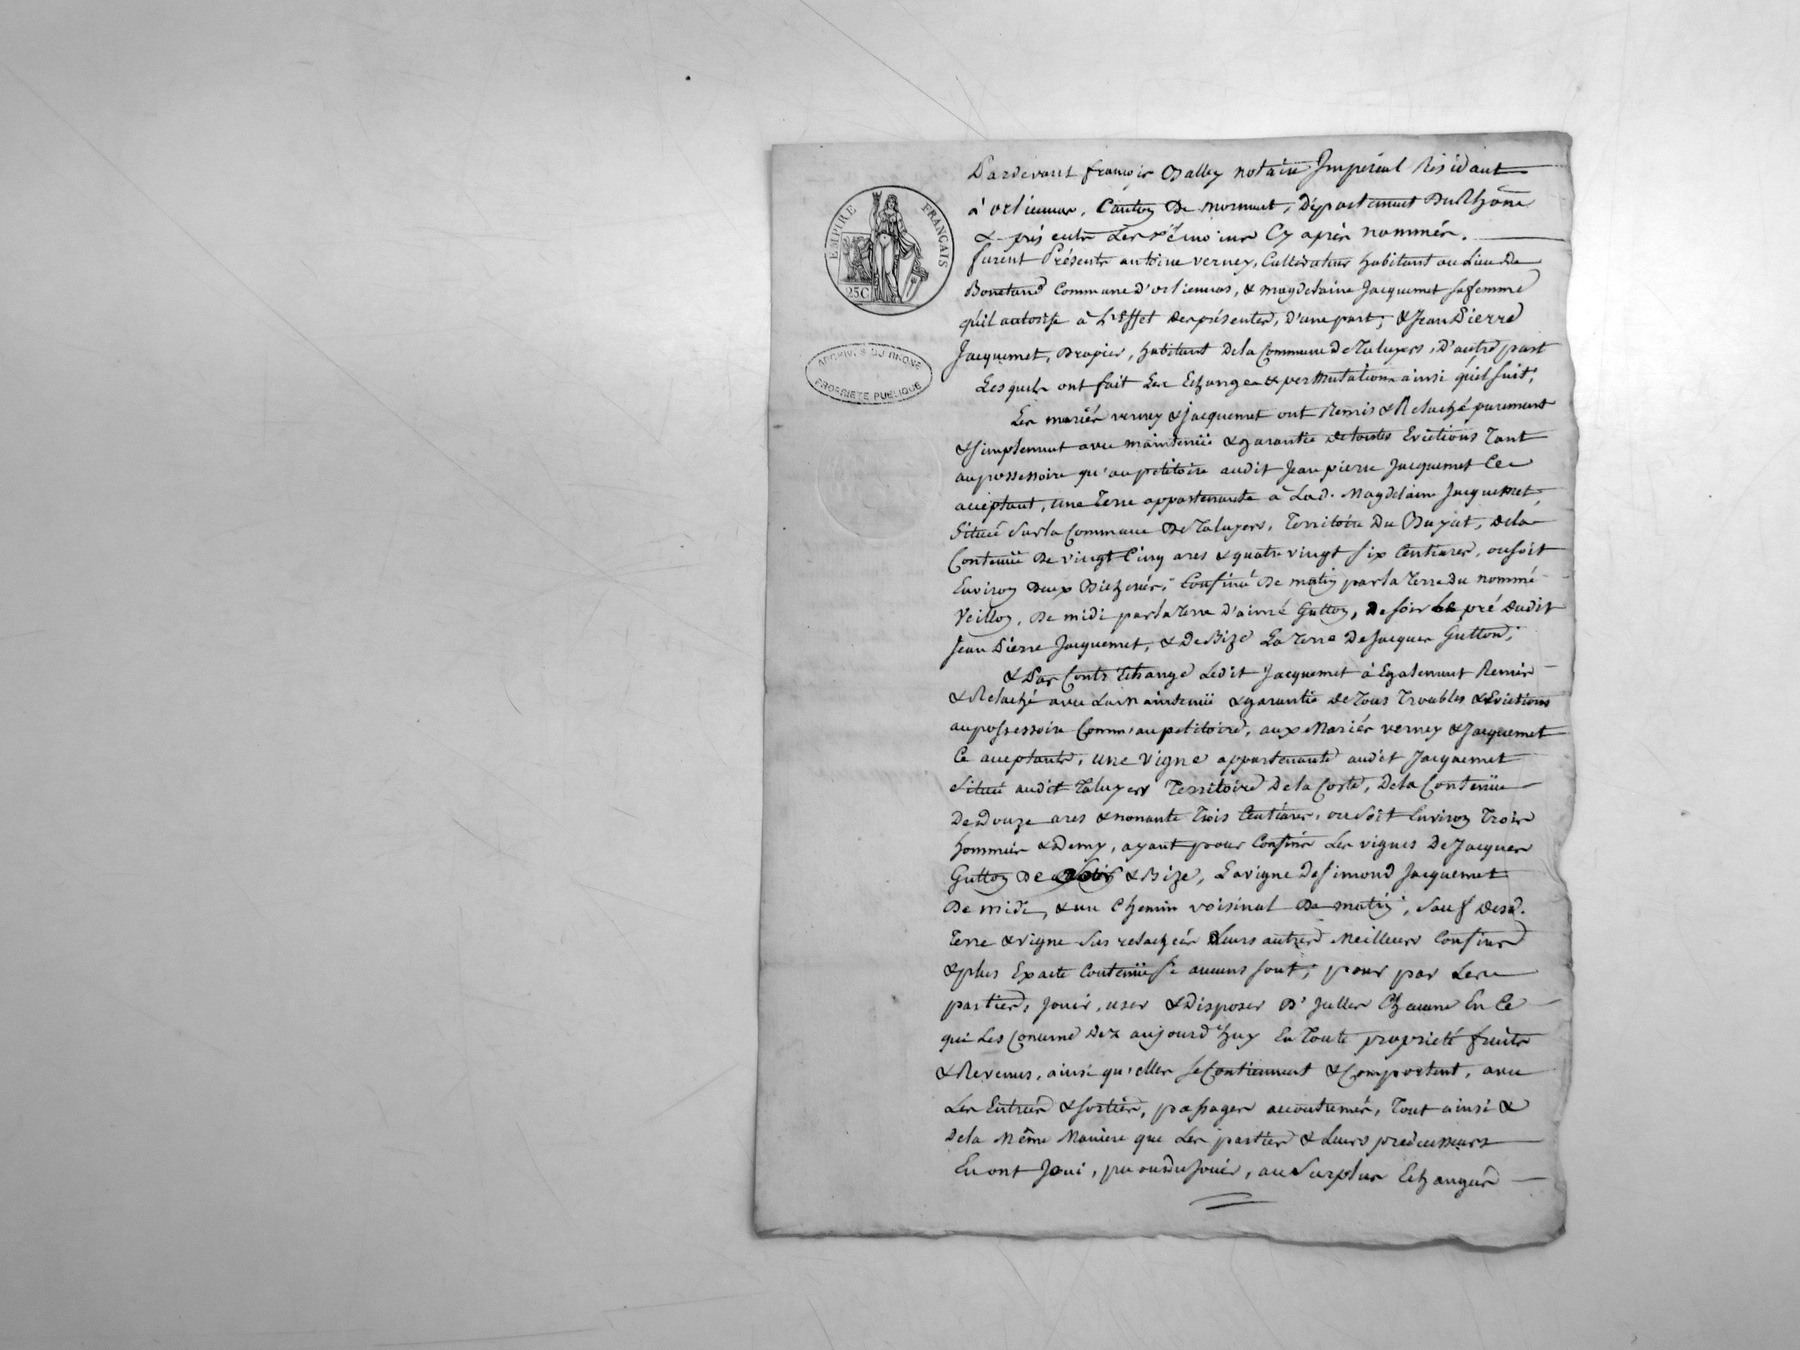 EMPIRE FRANÇAIS
25C
ARCHIVES DU RHONE
PROPRIETE PUBLIQUE
Pardevant françois Balley notaire Imperial Residant
à orliennas, Canton De mornant, Département Du Rhône
& présents Les témoins Cy après nommés.
furent Présents antoine verney, Cultivateur habitant au Lieu de
Bonetand Commune d'orliennas, & magdelaine Jacquemet sa femme
qu'il autorise à L'Effet des présentes, d'une part; & Jean Pierre
Jacquemet, Drapier, habitant de la Commune De Taluyers, D'autre part
Lesquels ont fait Les Echanges & permutations ainsi qu'il suit;
Les mariés verney & jacquemet ont Remis & Relaché purement
& simplement avec maintenüe & garantie de toutes Evictions Tant
au possessoire qu'au petitoire audit Jean pierre Jacquemet Ce
acceptant, une Terre appartenante à Lad. Magdelaine Jacquemet,
Située sur la Commune De Taluyers, Territoire Du Buyat, de la
Contenüe De vingt Cinq ares & quatre vingt six Centiares, ou soit
Environ Deux Bicherées, Confinée De matin par la Terre du nommé
Veillon, De midi par la Terre d'aimé Gutton, De soir Le pré dudit
Jean Pierre Jacquemet, & De Bize La Terre De Jacques Gutton;
& Par Contr'Echange Ledit Jacquemet à Egalement Remis
& Relaché avec La maintenüe & garantie De Tous Troubles & Evictions
au possessoire Comm'au petitoire, aux Mariés verney & Jacquemet
Ce acceptants, une vigne appartenante audit Jacquemet
Située audit Taluyers Territoire De la Coste, De la Contenüe
De Douze ares & nonante Trois Centiares, ou soit Environ Trois
hommées & Demy, ayant pour Confins Les vignes De Jacques
Gutton De soir & Bize, La vigne De simond Jacquemet
De midi, & un Chemin voisinal De matin, sauf Desd.
Terre & vigne sus relachées Leurs autres Meilleurs Confins
& plus Exacte Contenüe si aucuns sont; pour par Les
parties, Jouir, user & Disposer D'Icelles Chacune En Ce
qui Les Concerne Dez aujourd'huy En Toute propriété fruits
& Revenus, ainsi qu'elles se Contiennent & Comportent, avec
Les Entrées & sorties, passages accoutumés, Tout ainsi &
De la Même Maniere que Les parties & Leurs predecesseurs
En ont Joui, pu ou du Jouir, au Surplus Echangées